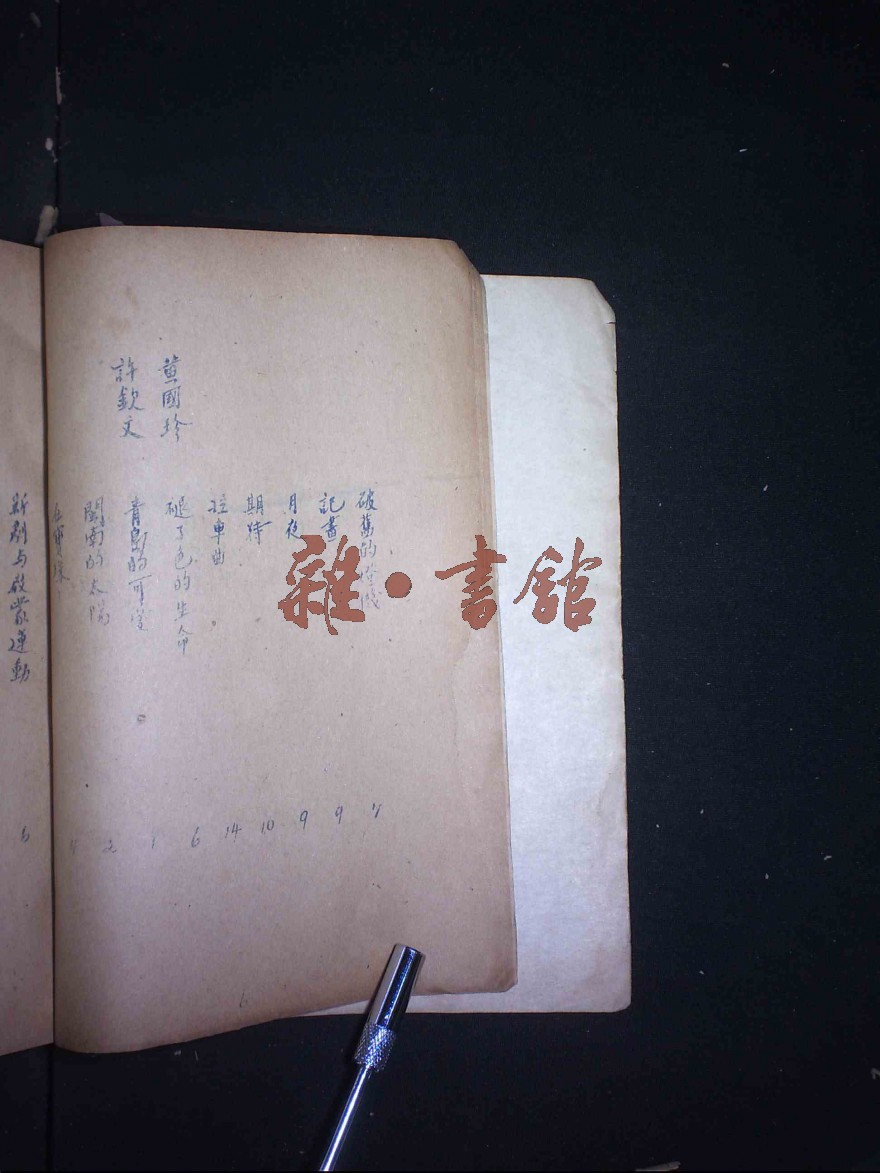 破舊的
記畫
月夜
期待
拉車曲
褪了色的生命
黃國珍
青島的可愛
許欽文
閩南的太陽
新劇与啟蒙運動
9
9
10
14
6
1
2
5
6
雜·書館